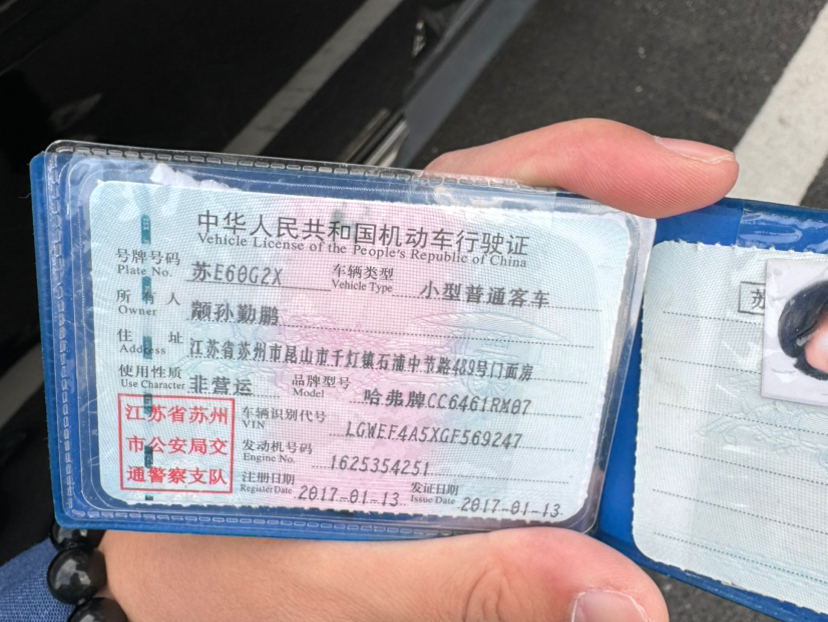 中华人民共和国机动车行驶证
Vehicle License of the People's Republic of China
号牌号码 Plate No. 苏E60G2X 车辆类型 Vehicle Type 小型普通客车
所有人 Owner 颛孙勤鹏
住址 Address 江苏省苏州市昆山市千灯镇石浦中节路489号门面房
使用性质 Use Character 非营运 品牌型号 Model 哈弗牌CC6461RM07
江苏省苏州
市公安局交
通警察支队
车辆识别代号 VIN LGWEF4A5XGF569247
发动机号码 Engine No. 1625354251
注册日期 Register Date 2017-01-13 发证日期 Issue Date 2017-01-13
苏